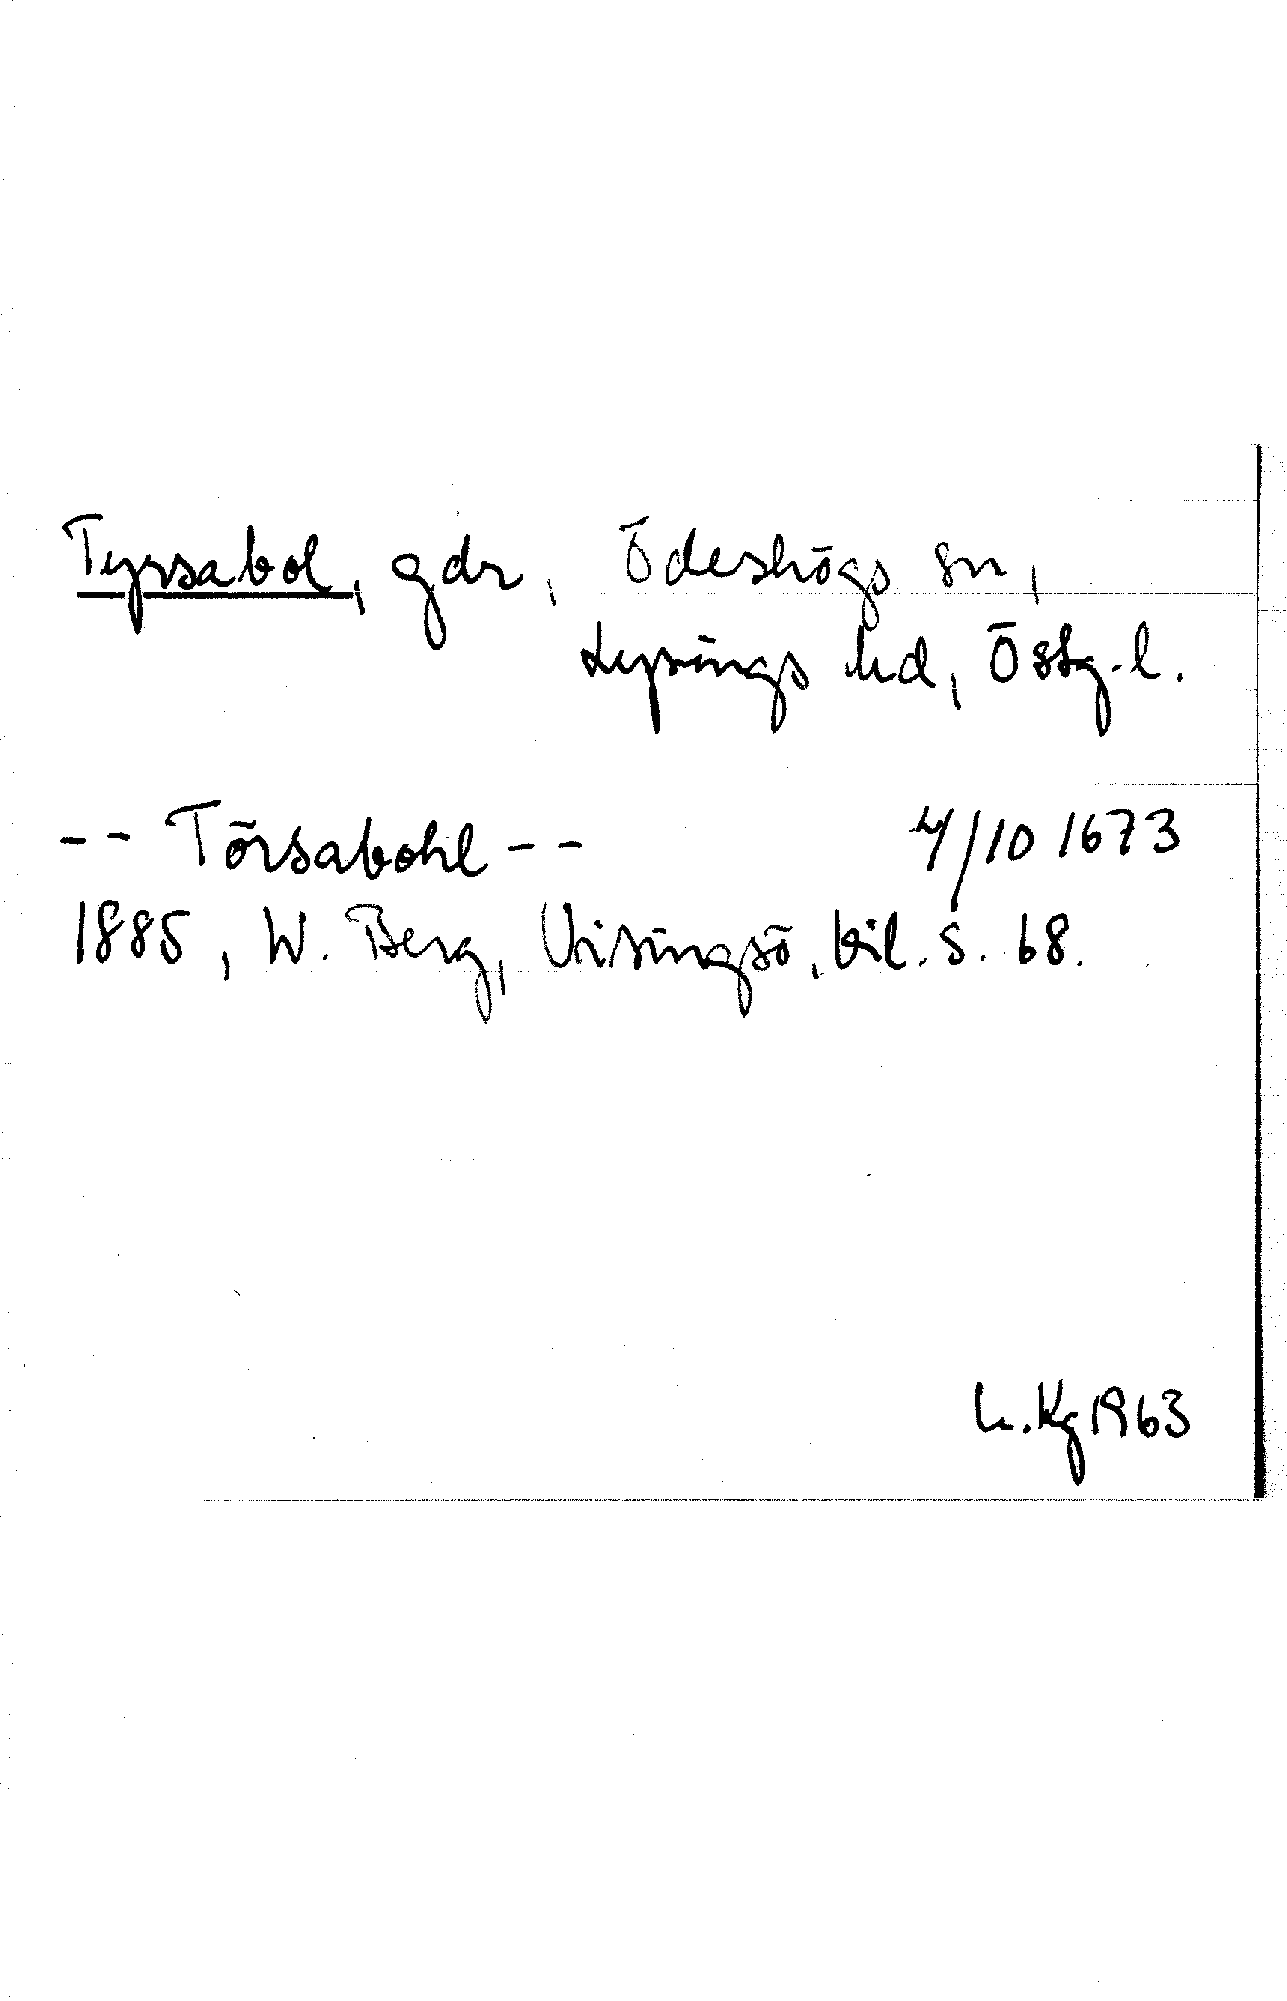 Tyrsabol, gdr, Ödeshögs sn,
Lysings hd, Östg.l.
-- Törsabohl -- 4/10 1673
1885, W. Berg, Visingsö, bil. s. 68.
Kg 1963